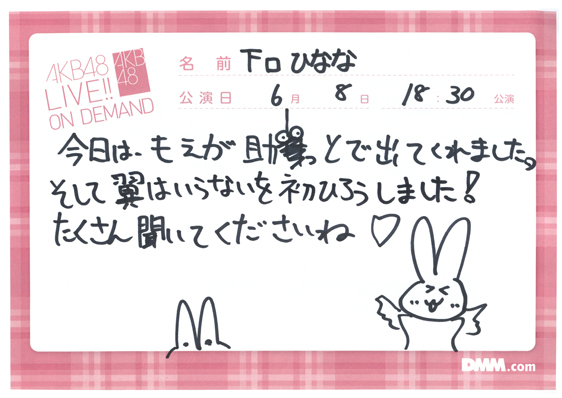 AKB48
LIVE!!
ON DEMAND
AKB
48
名前 下口ひなな
公演日 6月 8日 18:30 公演
今日は、もえが助っとで出てくれました。
そして翼はいらないを初ひろうしました!
たくさん聞いてくださいね♡
DMM.com